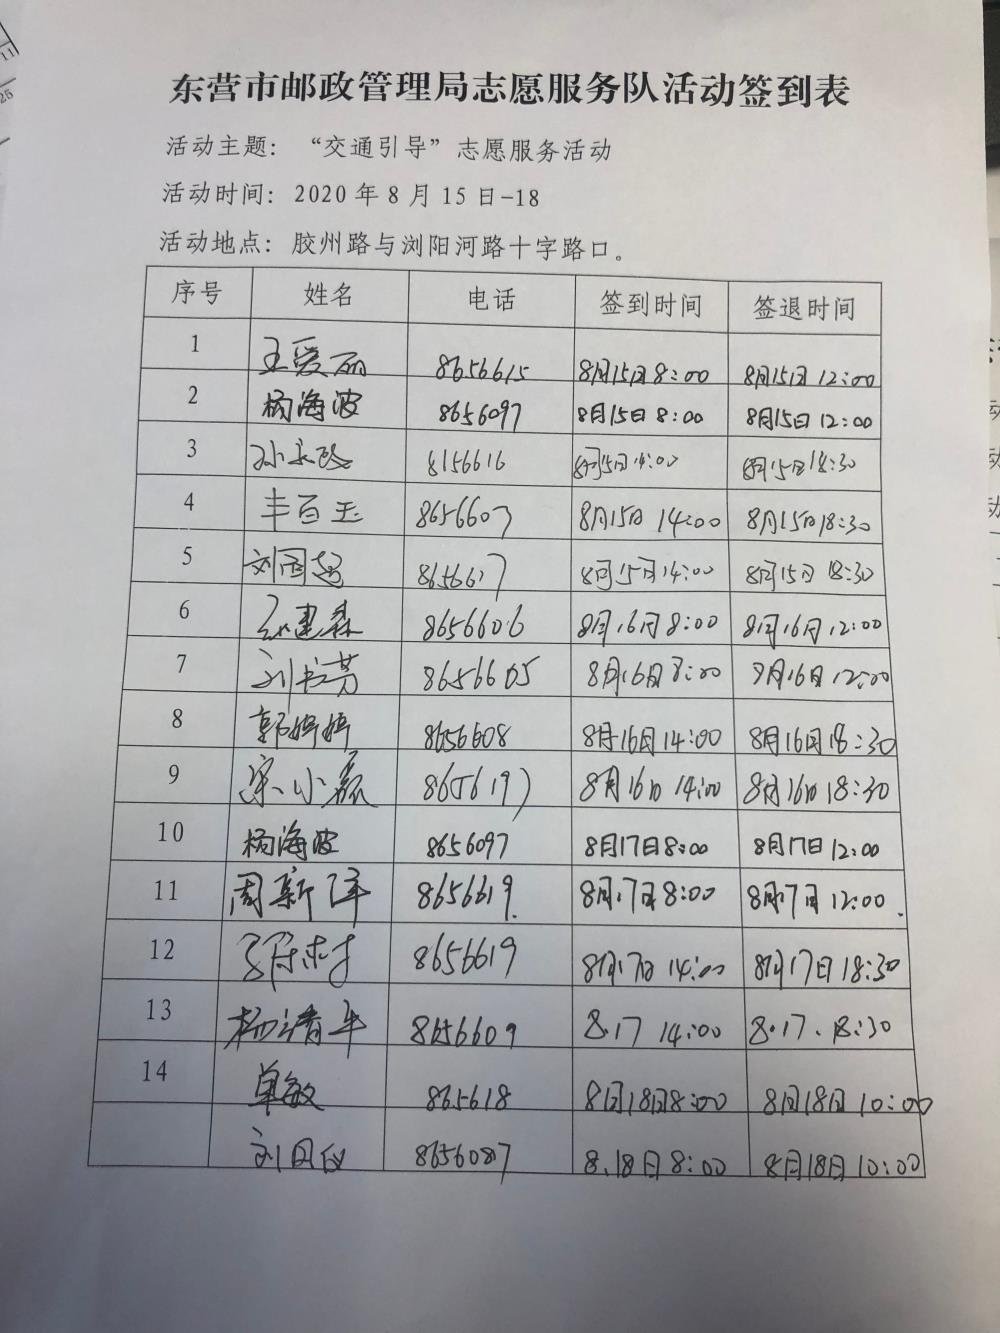 东营市邮政管理局志愿服务队活动签到表
活动主题： “交通引导”志愿服务活动
活动时间： 2020 年 8 月 15 日-18
活动地点： 胶州路与浏阳河路十字路口。
序号 姓名 电话 签到时间 签退时间
1 王爱丽 8656615 8月15日8:00 8月15日 12:00
2 杨海波 8656097 8月15日 8:00 8月15日 12:00
3 孙永政 8156616 8月15日14:00 8月15日18:30
4 丰百玉 8656607 8月15日 14:00 8月15日18:30
5 刘国超 8656617 8月15日14:00 8月15日 18:30
6 建森 8656606 8月16日8:00 8月16日12:00
7 刘书芳 8656605 8月16日8:00 8月16日 12:00
8 郭婷婷 8656608 8月16日14:00 8月16日18:30
9 宋小磊 8656197 8月16日 14:00 8月16日 18:30
10 杨海波 8656097 8月17日8:00 8月17日 12:00
11 周新泽 8656619. 8月17日8:00 8月17日 12:00.
12 8656619 8月17日 14:00 8月17日18:30
13 杨清年 8656609 8.17 14:00 8.17. 18:30
14 单敏 865618 8月18日8:00 8月18日 10:00
刘风仪 8656087 8.18日 8:00 8月18日 10:00